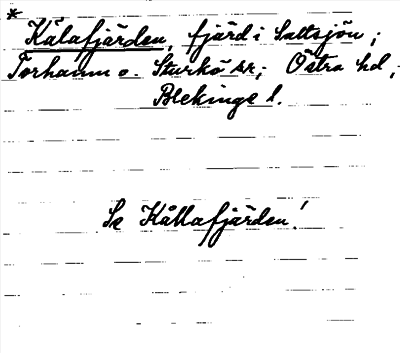 *
Kålafjärden, fjärd i Saltsjön;
Torhamn o. Sturkö snr; Östra hd,
Blekinge l.
Se Kållafjärden!